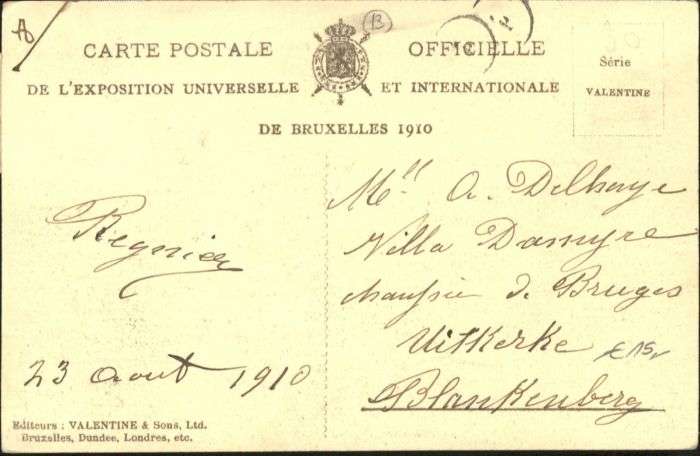 A
B
CARTE POSTALE OFFICIELLE
DE L'EXPOSITION UNIVERSELLE ET INTERNATIONALE
DE BRUXELLES 1910
Série
VALENTINE
Regnier
23 aout 1910
Mell A. Delhaye
Villa Damyre
chaussée de Bruges
Uitkerke
Blankenberg
Editeurs : VALENTINE & Sons, Ltd.
Bruxelles, Dundee, Londres, etc.